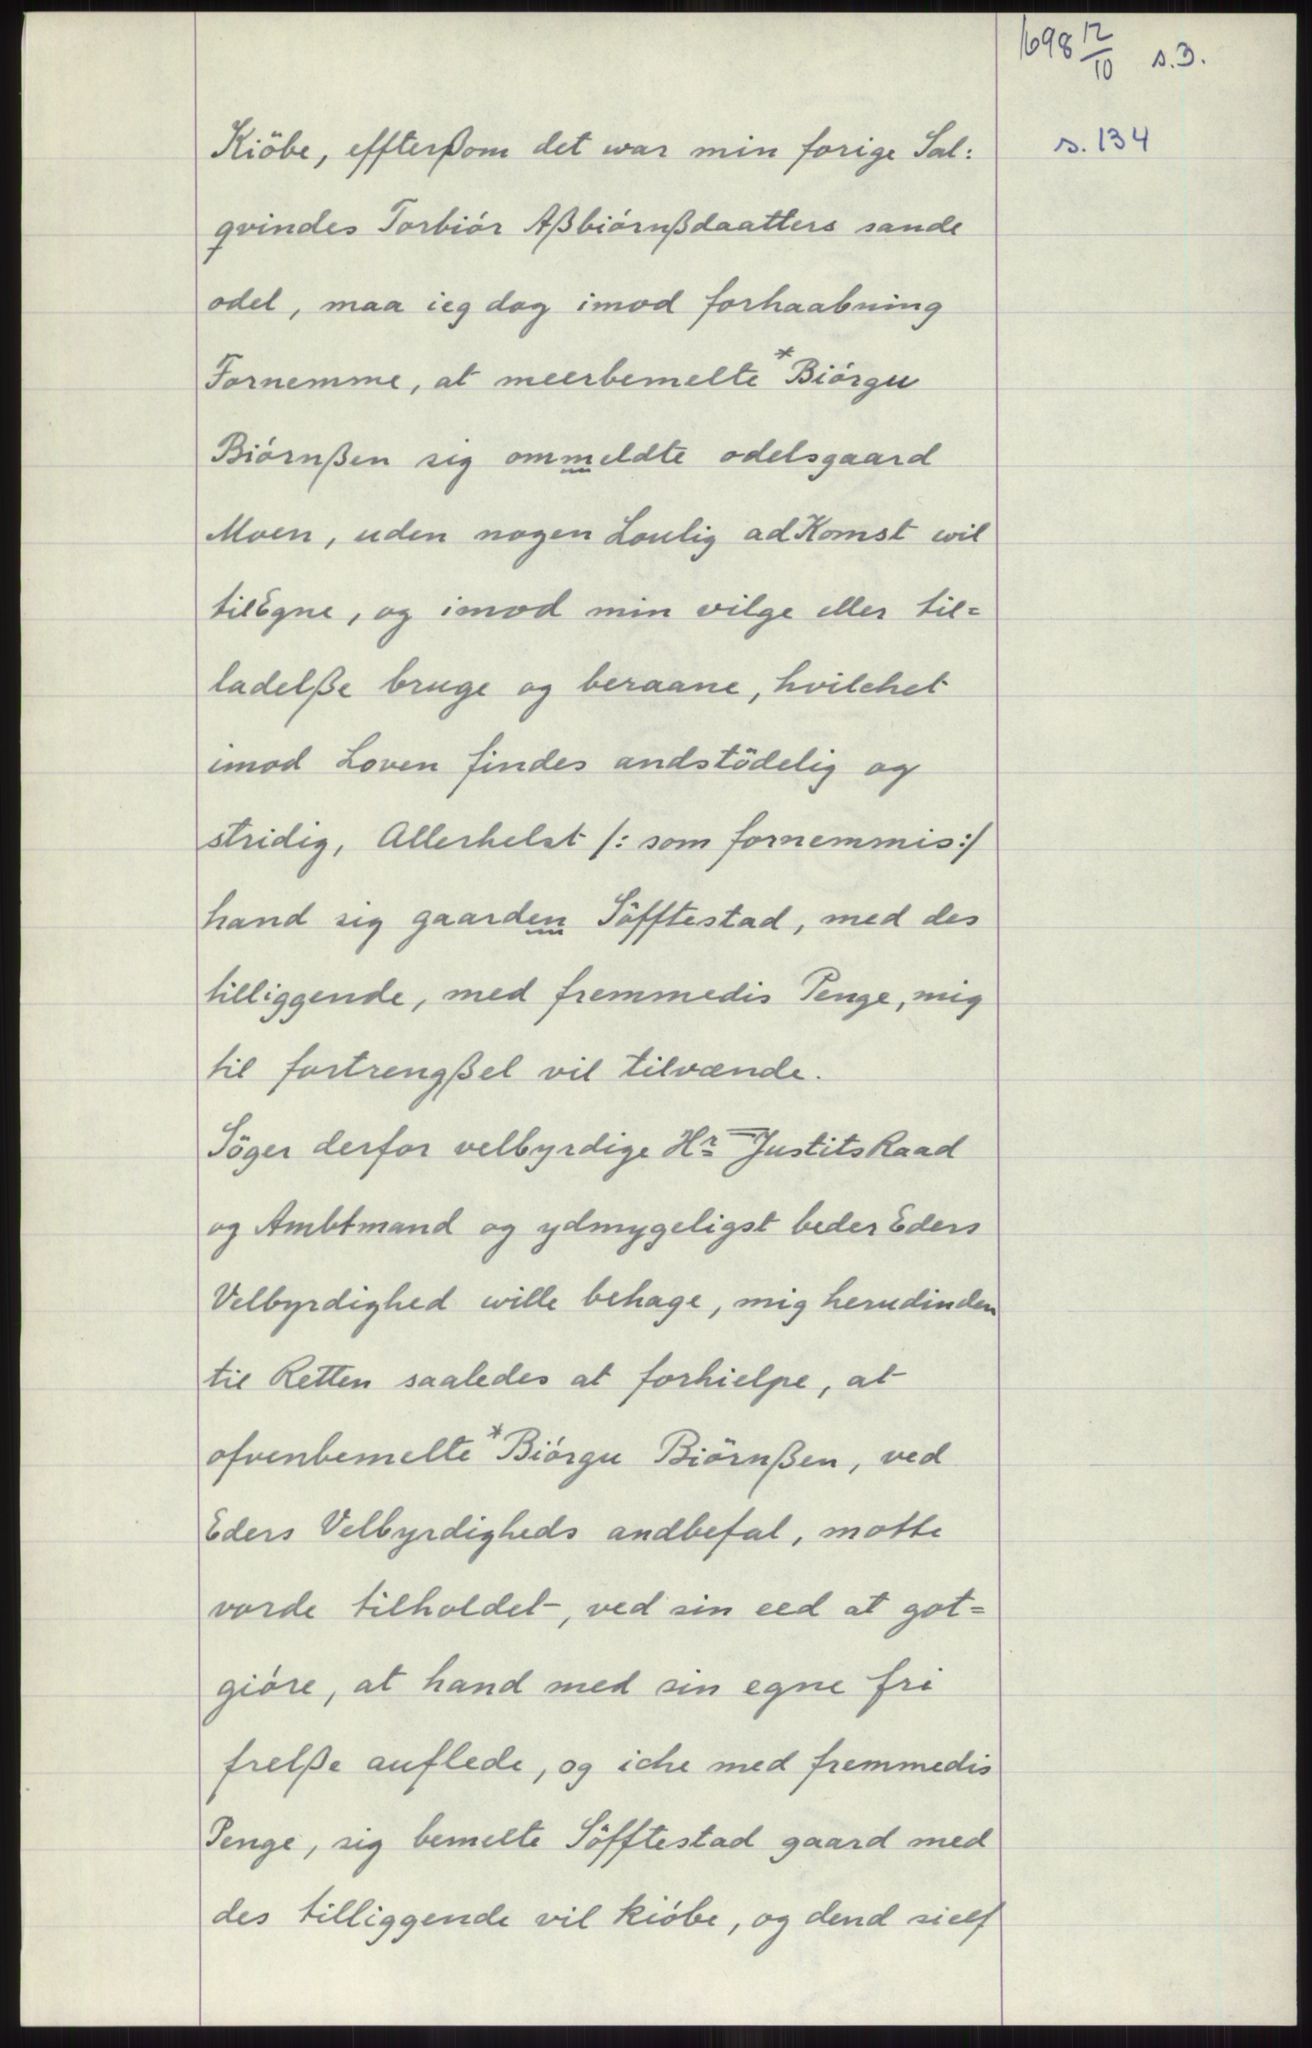 1698 12/10 s.3.
s.134
Kiöbe, effterßom det war min forige Sal:
qvindes Torbiór Aßbiórnßdaatters sande
odel, maa ieg dog imod forhaabning
Fornemme, at meerbemelte *Biórgu
Biórnßen sig ommeldte odelsgaard
Moen, uden nogen Loulig adKomst wil
tilEgne, og imod min vilge eller til=
ladelße bruge og beraane, hvilchet
imod Loven findes andstödelig og
stridig, Allerhelst /: som fornemmis:/
hand sig gaarden Söfftestad, med des
tilliggende, med fremmedis Penge, mig
til fortrengßel vil tilvænde.
Söger derfor velbyrdige Hr= JustitsRaad
og Ambtmand og ydmygeligst beder Eders
Velbyrdighed wille behage, mig herudinden
til Retten saaledes at forhielpe, at
ofvenbemelte *Biórgu Biörnßen, ved
Eders Velbyrdigheds andbefal, motte
vorde tilholdet, ved sin eed at got=
gióre, at hand med sin egne fri
frelße auflede, og iche med fremmedis
Penge, sig bemelte Söfftestad gaard med
des tilliggende vil kióbe, og dend sielf